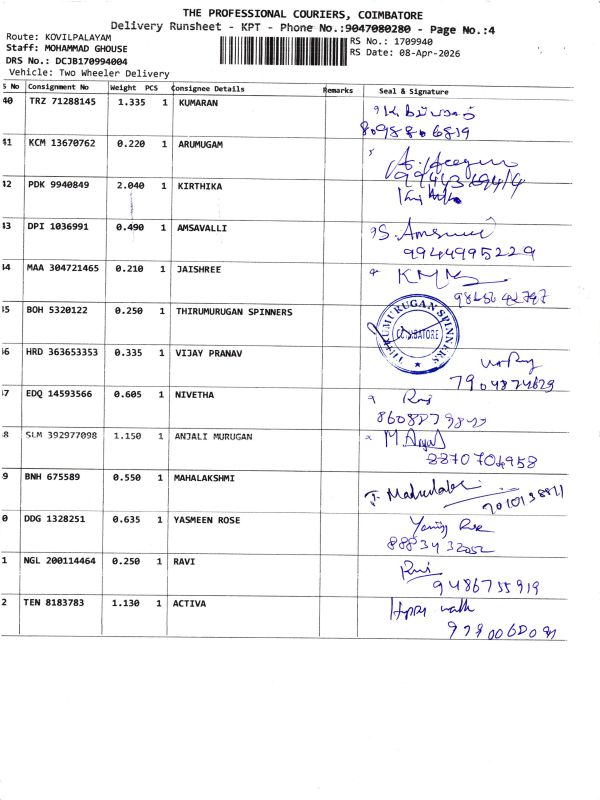 THE PROFESSIONAL COURIERS, COIMBATORE
Delivery Runsheet - KPT - Phone No.:9047080280 - Page No.:4
Route: KOVILPALAYAM
RS No.: 1709940
Staff: MOHAMMAD GHOUSE
RS Date: 08-Apr-2026
DRS No.: DCJB170994004
Vehicle: Two Wheeler Delivery
S No Consignment No Weight PCS Consignee Details Remarks Seal & Signature
40 TRZ 71288145 1.335 1 KUMARAN
8098806819
41 KCM 13670762 0.220 1 ARUMUGAM
42 PDK 9940849 2.040 1 KIRTHIKA
43 DPI 1036991 0.490 1 AMSAVALLI
9944995229
44 MAA 304721465 0.210 1 JAISHREE
45 BOH 5320122 0.250 1 THIRUMURUGAN SPINNERS
THIRUMURUGAN SPINNERS
COIMBATORE
46 HRD 363653353 0.335 1 VIJAY PRANAV
7904874629
47 EDQ 14593566 0.605 1 NIVETHA
48 SLM 392977098 1.150 1 ANJALI MURUGAN
8870704958
9 BNH 675589 0.550 1 MAHALAKSHMI
0 DDG 1328251 0.635 1 YASMEEN ROSE
1 NGL 200114464 0.250 1 RAVI
9486755919
2 TEN 8183783 1.130 1 ACTIVA